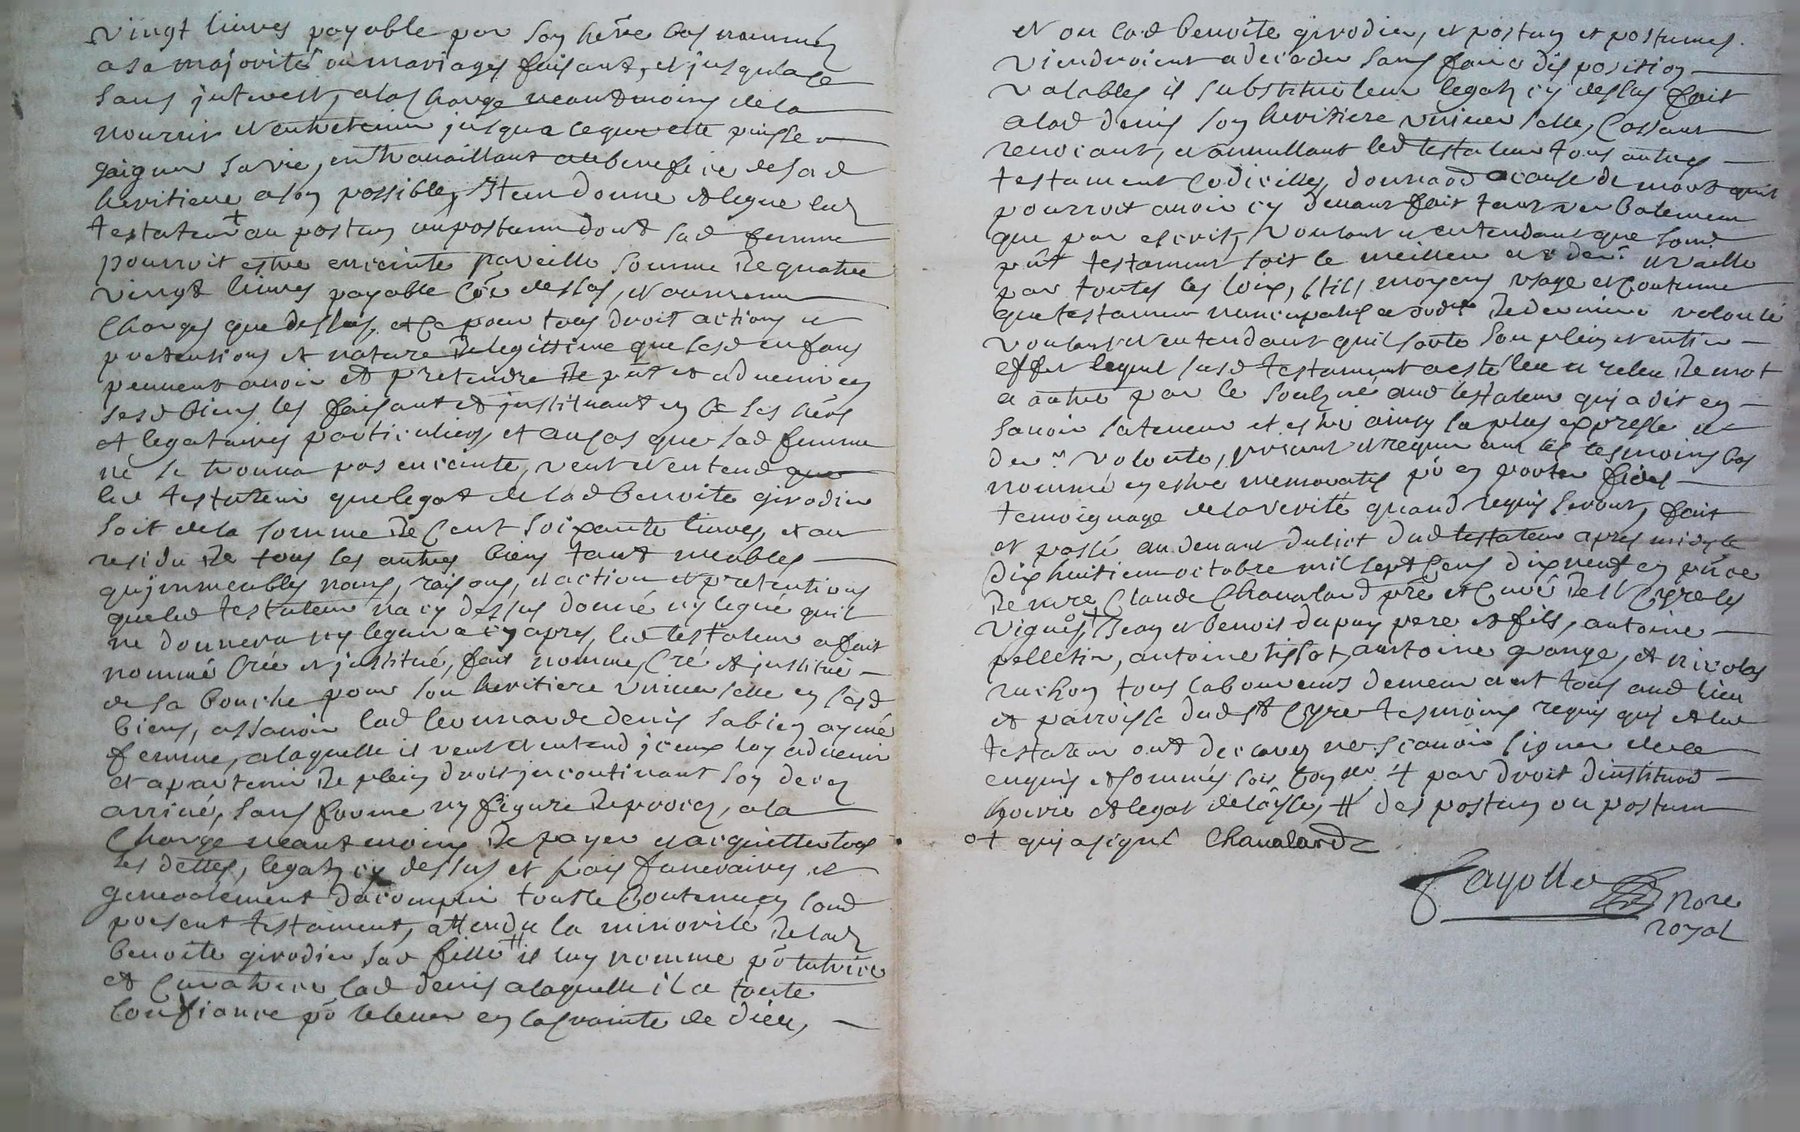 vingt livres payable par son hére bas nommén
a sa majorité ou mariages faisant, et jusqu'alce
sans jnterest, alascharge neantmoins de la
nourrir et entretenir jusqua ceque elle puisse
gaigner sa vie, en travaillant au benefice de sad
heritiere a son possible, Item donne et legue led
testateur + au postum ou postume dont sad femme
pourroit estre enceinte pareille somme de quatre
vingt livres payable Còe dessus, et aumeme
Charges que dessus, et Ce pour tous droit actions et
pretentions et nature de legittime que sesd enfans
peuvent avoir et pretendre de pñt et advenir en
sesd biens les faisant et jnstituant en Ce ses hérs
et legataires particuliers et au cas que sad femme
ne se trouva pas enceinte, veut et entend que
led testateur que legat de lad benoite girodier
soit de la somme de Cent soixante livres, et au
residu de tous les autres biens tant meubles
qu jmmeubles noms, raisons, et action et pretentions
que led testateur na cy dessus donné ny legué quil
ne donnera ny leguera cy apres, led testateur a fait
nommé Créé et jnstitué, fait nomme, Cré et jnstitue
de sa bouche pour son heritiere universelle en sesd
biens, assavoir lad leonnarde denis sa bien aymée
femme, a laquelle il veut et entend jceux luy advenir
et apartenir de plein droit jncontinant son deces
arrivé, sans forme ny figure de proces, a la
Charge neantmoins de payer et acquitter tous
les dettes, legatz cy dessus et frais funeraires et
generalement dacomplir tout le Contenu en soud
present testament, attendu la minorité de lad
benoite girodier sad fille # il luy nomme pò tutrice
et Curatrice lad denis a laquelle il a toute
Confiance pò lelever en la crainte de dieu,
et ou lad benoite girodier, et postum et postumes
viendroient a deceder sans faire disposition
valables il substitue leur legatz cy dessus fait
a lad denis son heritiere universelle, Cassant
revocant, et annullant led testateur tous autres
testament Codicilles, donnaod a cause de mort quil
pourroit avoir cy devant fait tant verbalement
que par escrit, voulant et entendant que sond
pñt testament soit le meilleur et dern. et vaille
par toutes les loix, stil, moyens usage et Coutume
que testament nuncupatif et ord de derniere volonté
voulant et entendant quil sorte son plein et entier
effet lequel susd testament a esté leu et releu de mot
a autre par le soubzné aud testateur qui a dit en
savoir la teneur et estre ainsy sa plus expresse et
der.re volonté, priant et requerant les tesmoins bas
nommé en estre memoratifs pò en porter fidel
temoignage de la verité quand requis seront, fait
et passé au devant du lict dud testateur apres midy le
dixhuitieme octobre mil sept Cens dix neuf en pñce
de mre Claude Chavaland pñe et Curé de St Cyre les
vignes, o+ Jean et benoit dupuy pere et fils, antoine
pelletier, antoine tissot, antoine grange, et nicolas
ruchon tous laboureurs demeurant tous aud lieu
et parroisse dud St Cyre tesmoins requis qui et led
testateur ont declarez ne scavoir signer de ce
enquis et sommés + par droit dinstitud
et legat # des postum ou postume
o+ qui a signé Chavaland
Fayolle Nore
royal